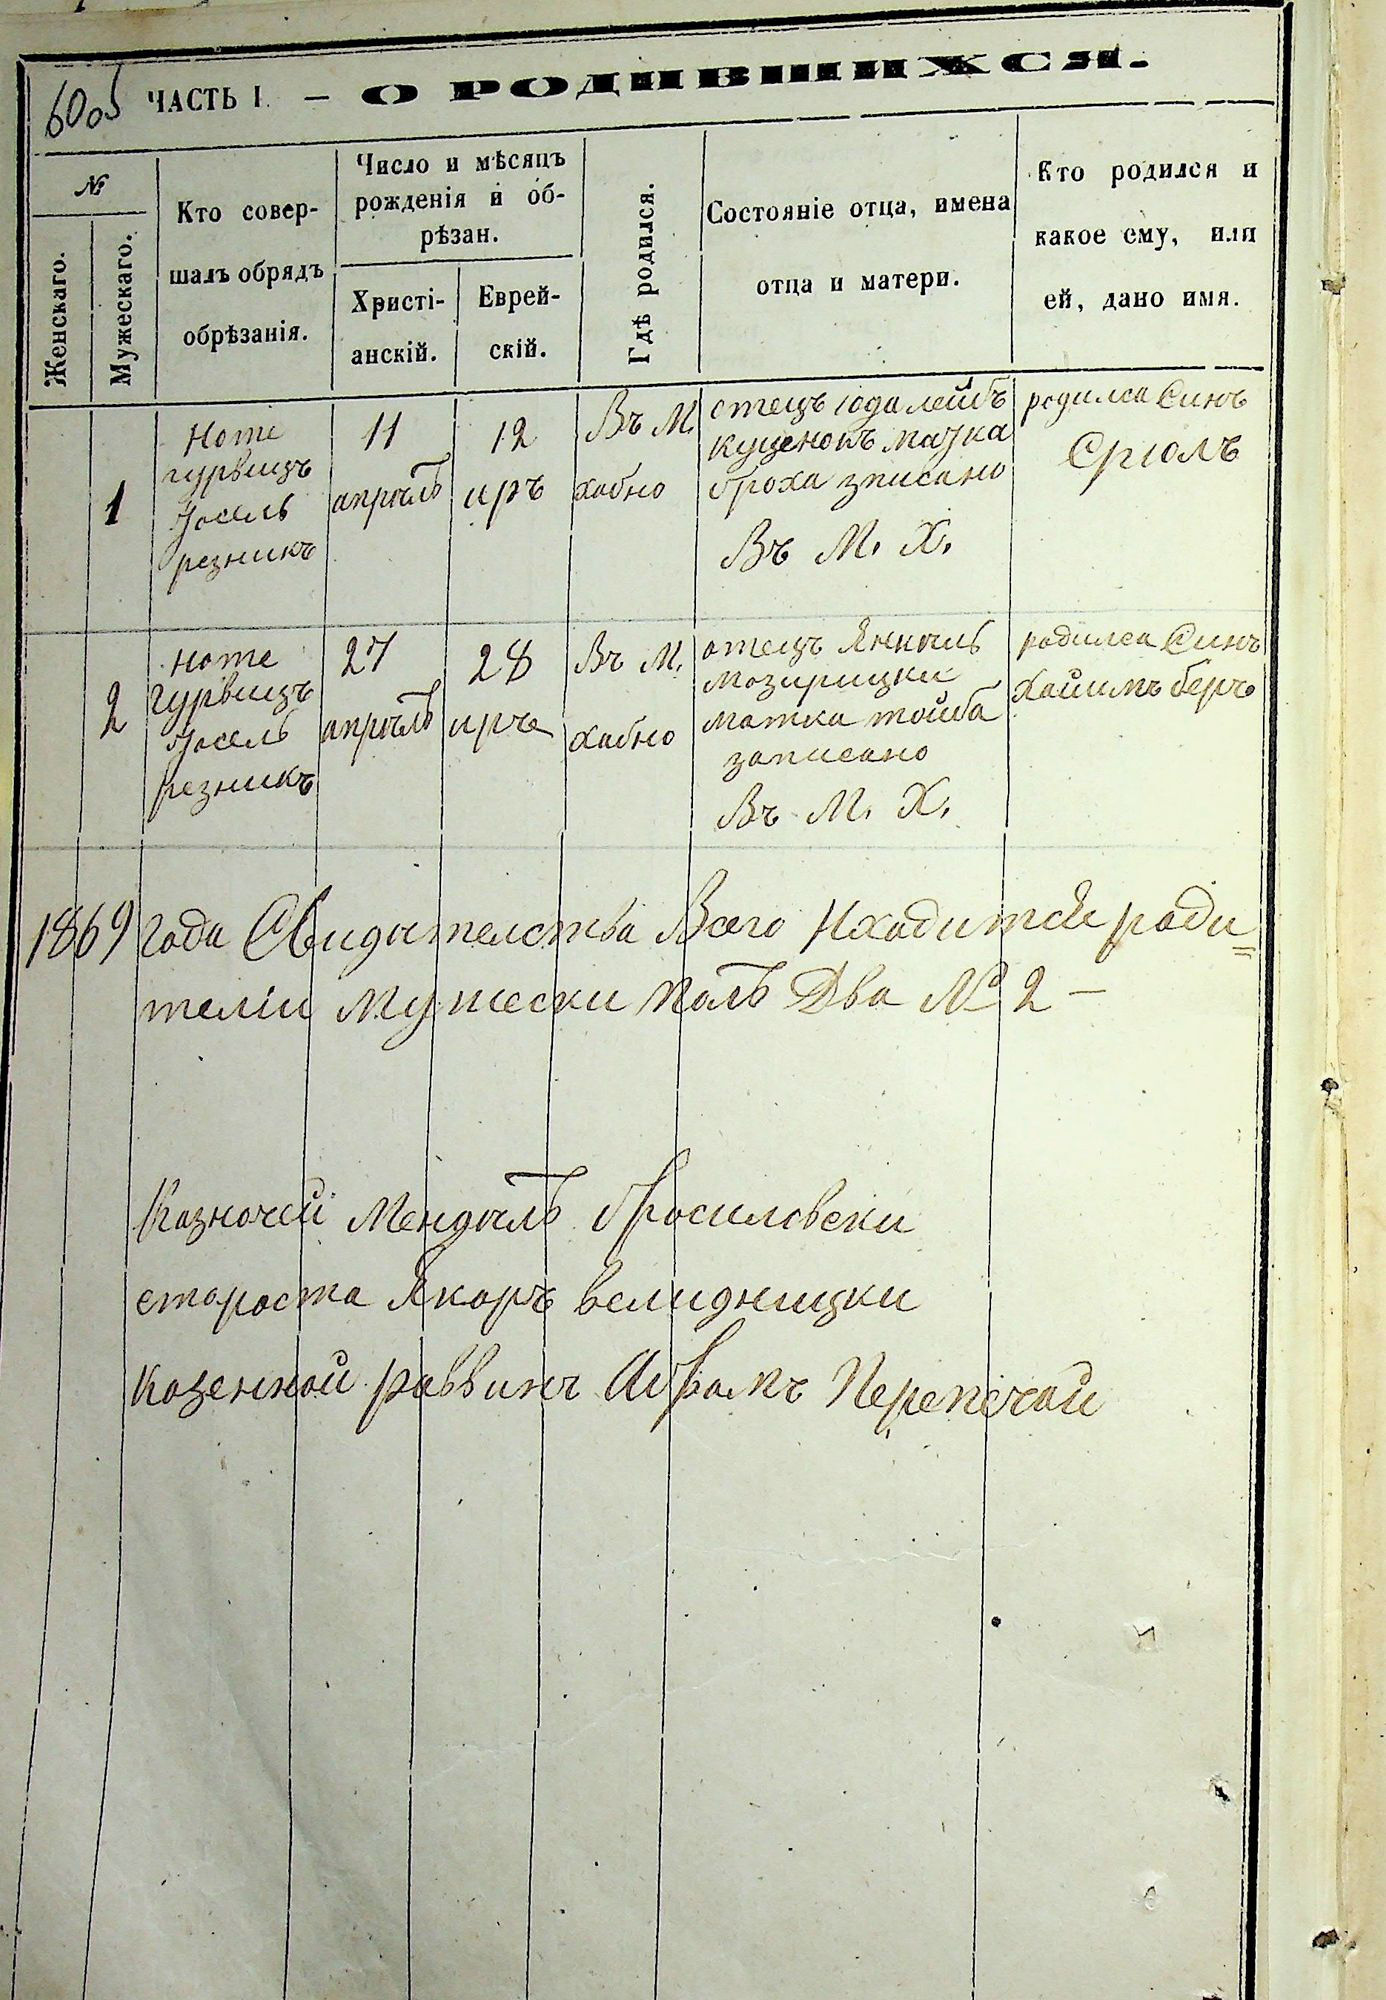 60об
ЧАСТЬ I. — О РОДИВШИХСЯ.
№
Женскаго.
Мужескаго.
Кто совер-
шалъ обрядъ
обрѣзанія.
Число и мѣсяцъ
рожденія и об-
рѣзан.
Христі-
анскій.
Еврей-
скій.
Гдѣ родился.
Состояніе отца, имена
отца и матери.
Кто родился и
какое ему, или
ей, дано имя.
1
Ноте
гурвицъ
Іосель
резникъ
11
апрѣль
12
иръ
Въ М.
хабно
отецъ юдалейбъ
куценокъ матка
броха зписано
Въ М. Х.
родилса Синъ
Срюлъ
2
Ноте
гурвицъ
Іосель
резникъ
27
апрѣль
28
иръ
Въ М.
хабно
отецъ Янкѣль
мозирицки
матка тойба
записано
Въ М. Х.
родилса Синъ
Хаимъ беръ
1869 года Свидѣтелства Всего Находитсе роди
теліи Мужески Полъ Два № 2 —
Казночей Мендѣль Бросиловски
староста Якоръ велидницки
Казенной раввинъ Абрамъ Перепечай